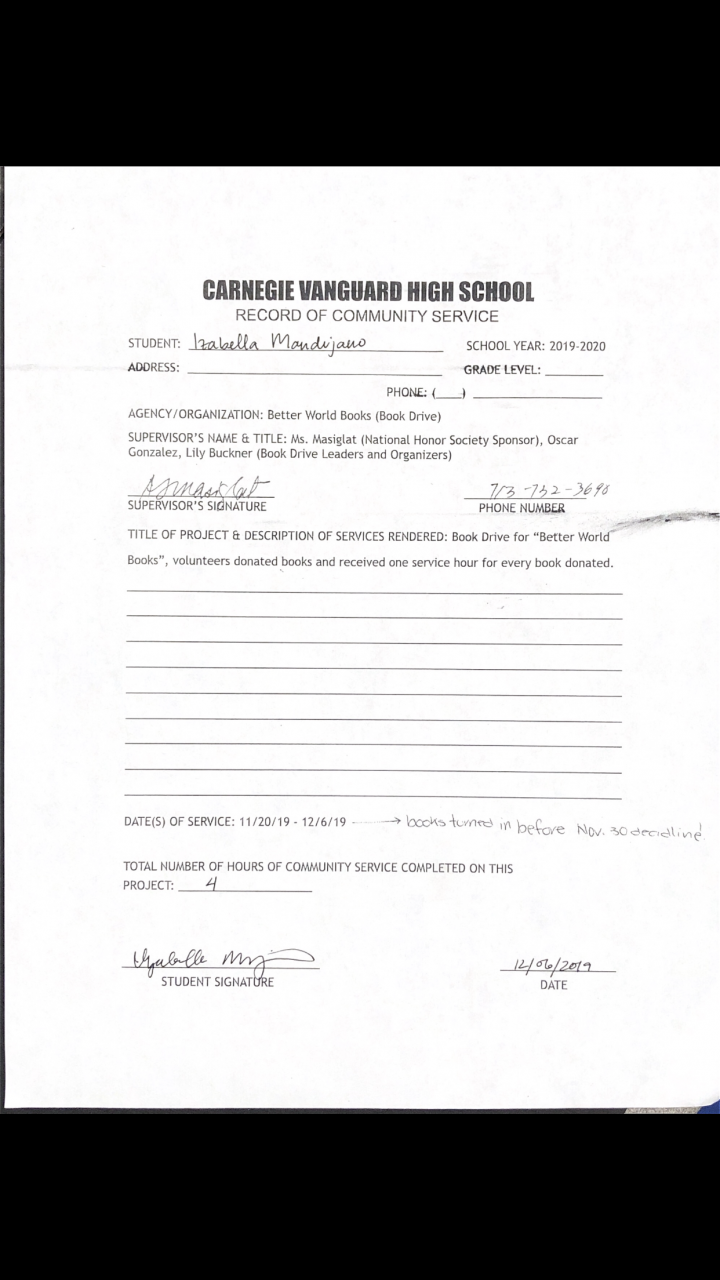 CARNEGIE VANGUARD HIGH SCHOOL
RECORD OF COMMUNITY SERVICE
STUDENT: Izabella Mandijano SCHOOL YEAR: 2019-2020
ADDRESS: GRADE LEVEL:
PHONE: ( )
AGENCY/ORGANIZATION: Better World Books (Book Drive)
SUPERVISOR'S NAME & TITLE: Ms. Masiglat (National Honor Society Sponsor), Oscar
Gonzalez, Lily Buckner (Book Drive Leaders and Organizers)
713-732-3690
SUPERVISOR'S SIGNATURE PHONE NUMBER
TITLE OF PROJECT & DESCRIPTION OF SERVICES RENDERED: Book Drive for "Better World
Books", volunteers donated books and received one service hour for every book donated.
DATE(S) OF SERVICE: 11/20/19 - 12/6/19 → books turned in before Nov. 30 deadline!
TOTAL NUMBER OF HOURS OF COMMUNITY SERVICE COMPLETED ON THIS
PROJECT: 4
12/06/2019
STUDENT SIGNATURE DATE